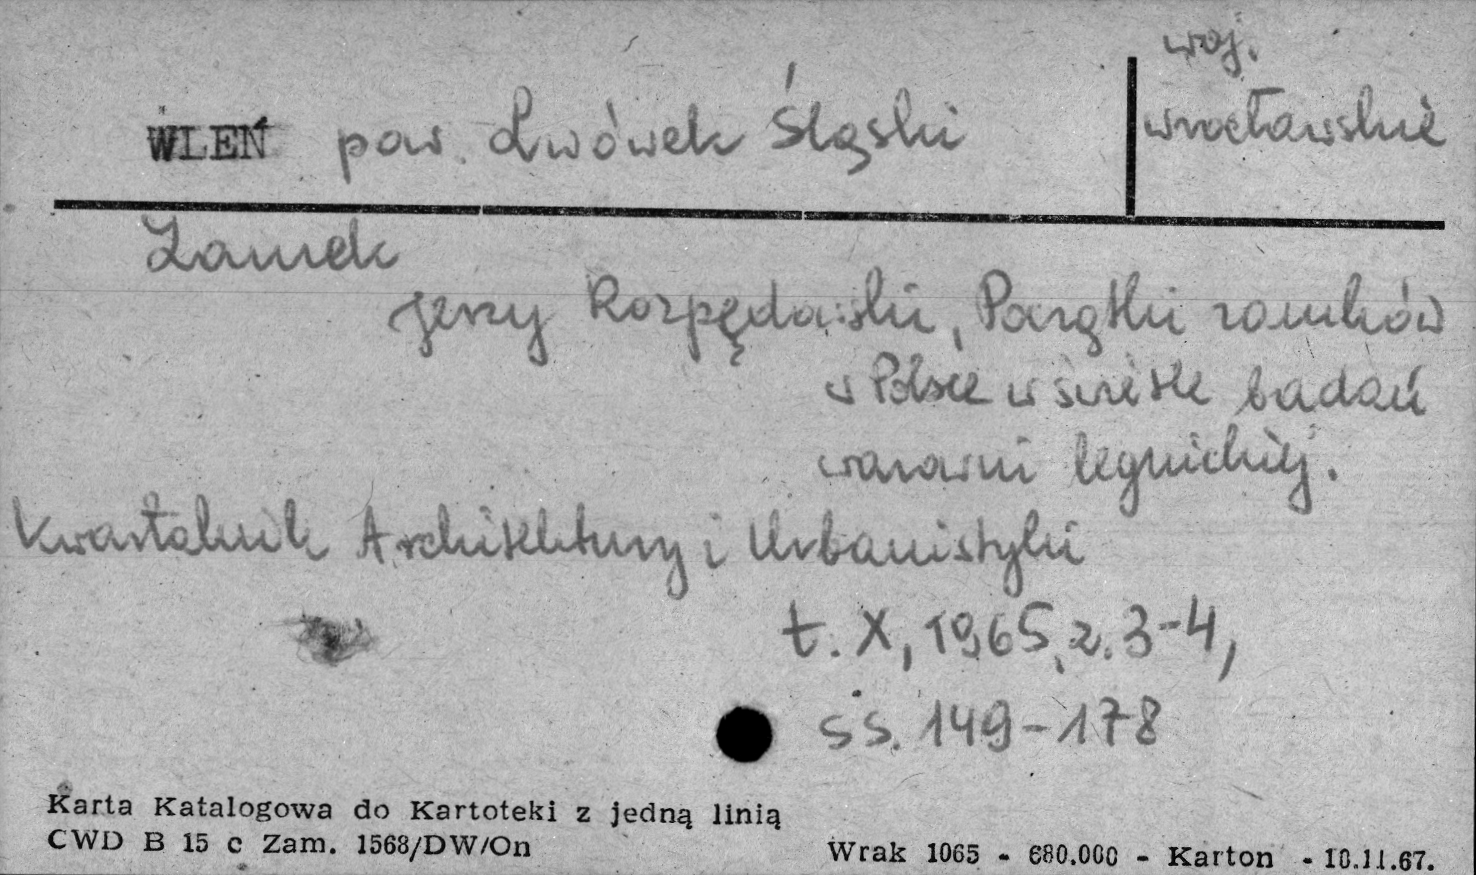 woj.
WLEŃ pow. Lwówek Śląski wrocławskie
Zamek
Jerzy Rozpędowski, Początki zamków
w Polsce w świetle badań
warowni legnickiej.
Kwartalnik Architektury i Urbanistyki
t. X, 1965, z. 3-4,
ss. 149-178
Karta Katalogowa do Kartoteki z jedną linią
CWD B 15 c Zam. 1568/DW/On
Wrak 1065 - 680.000 - Karton - 10.11.67.